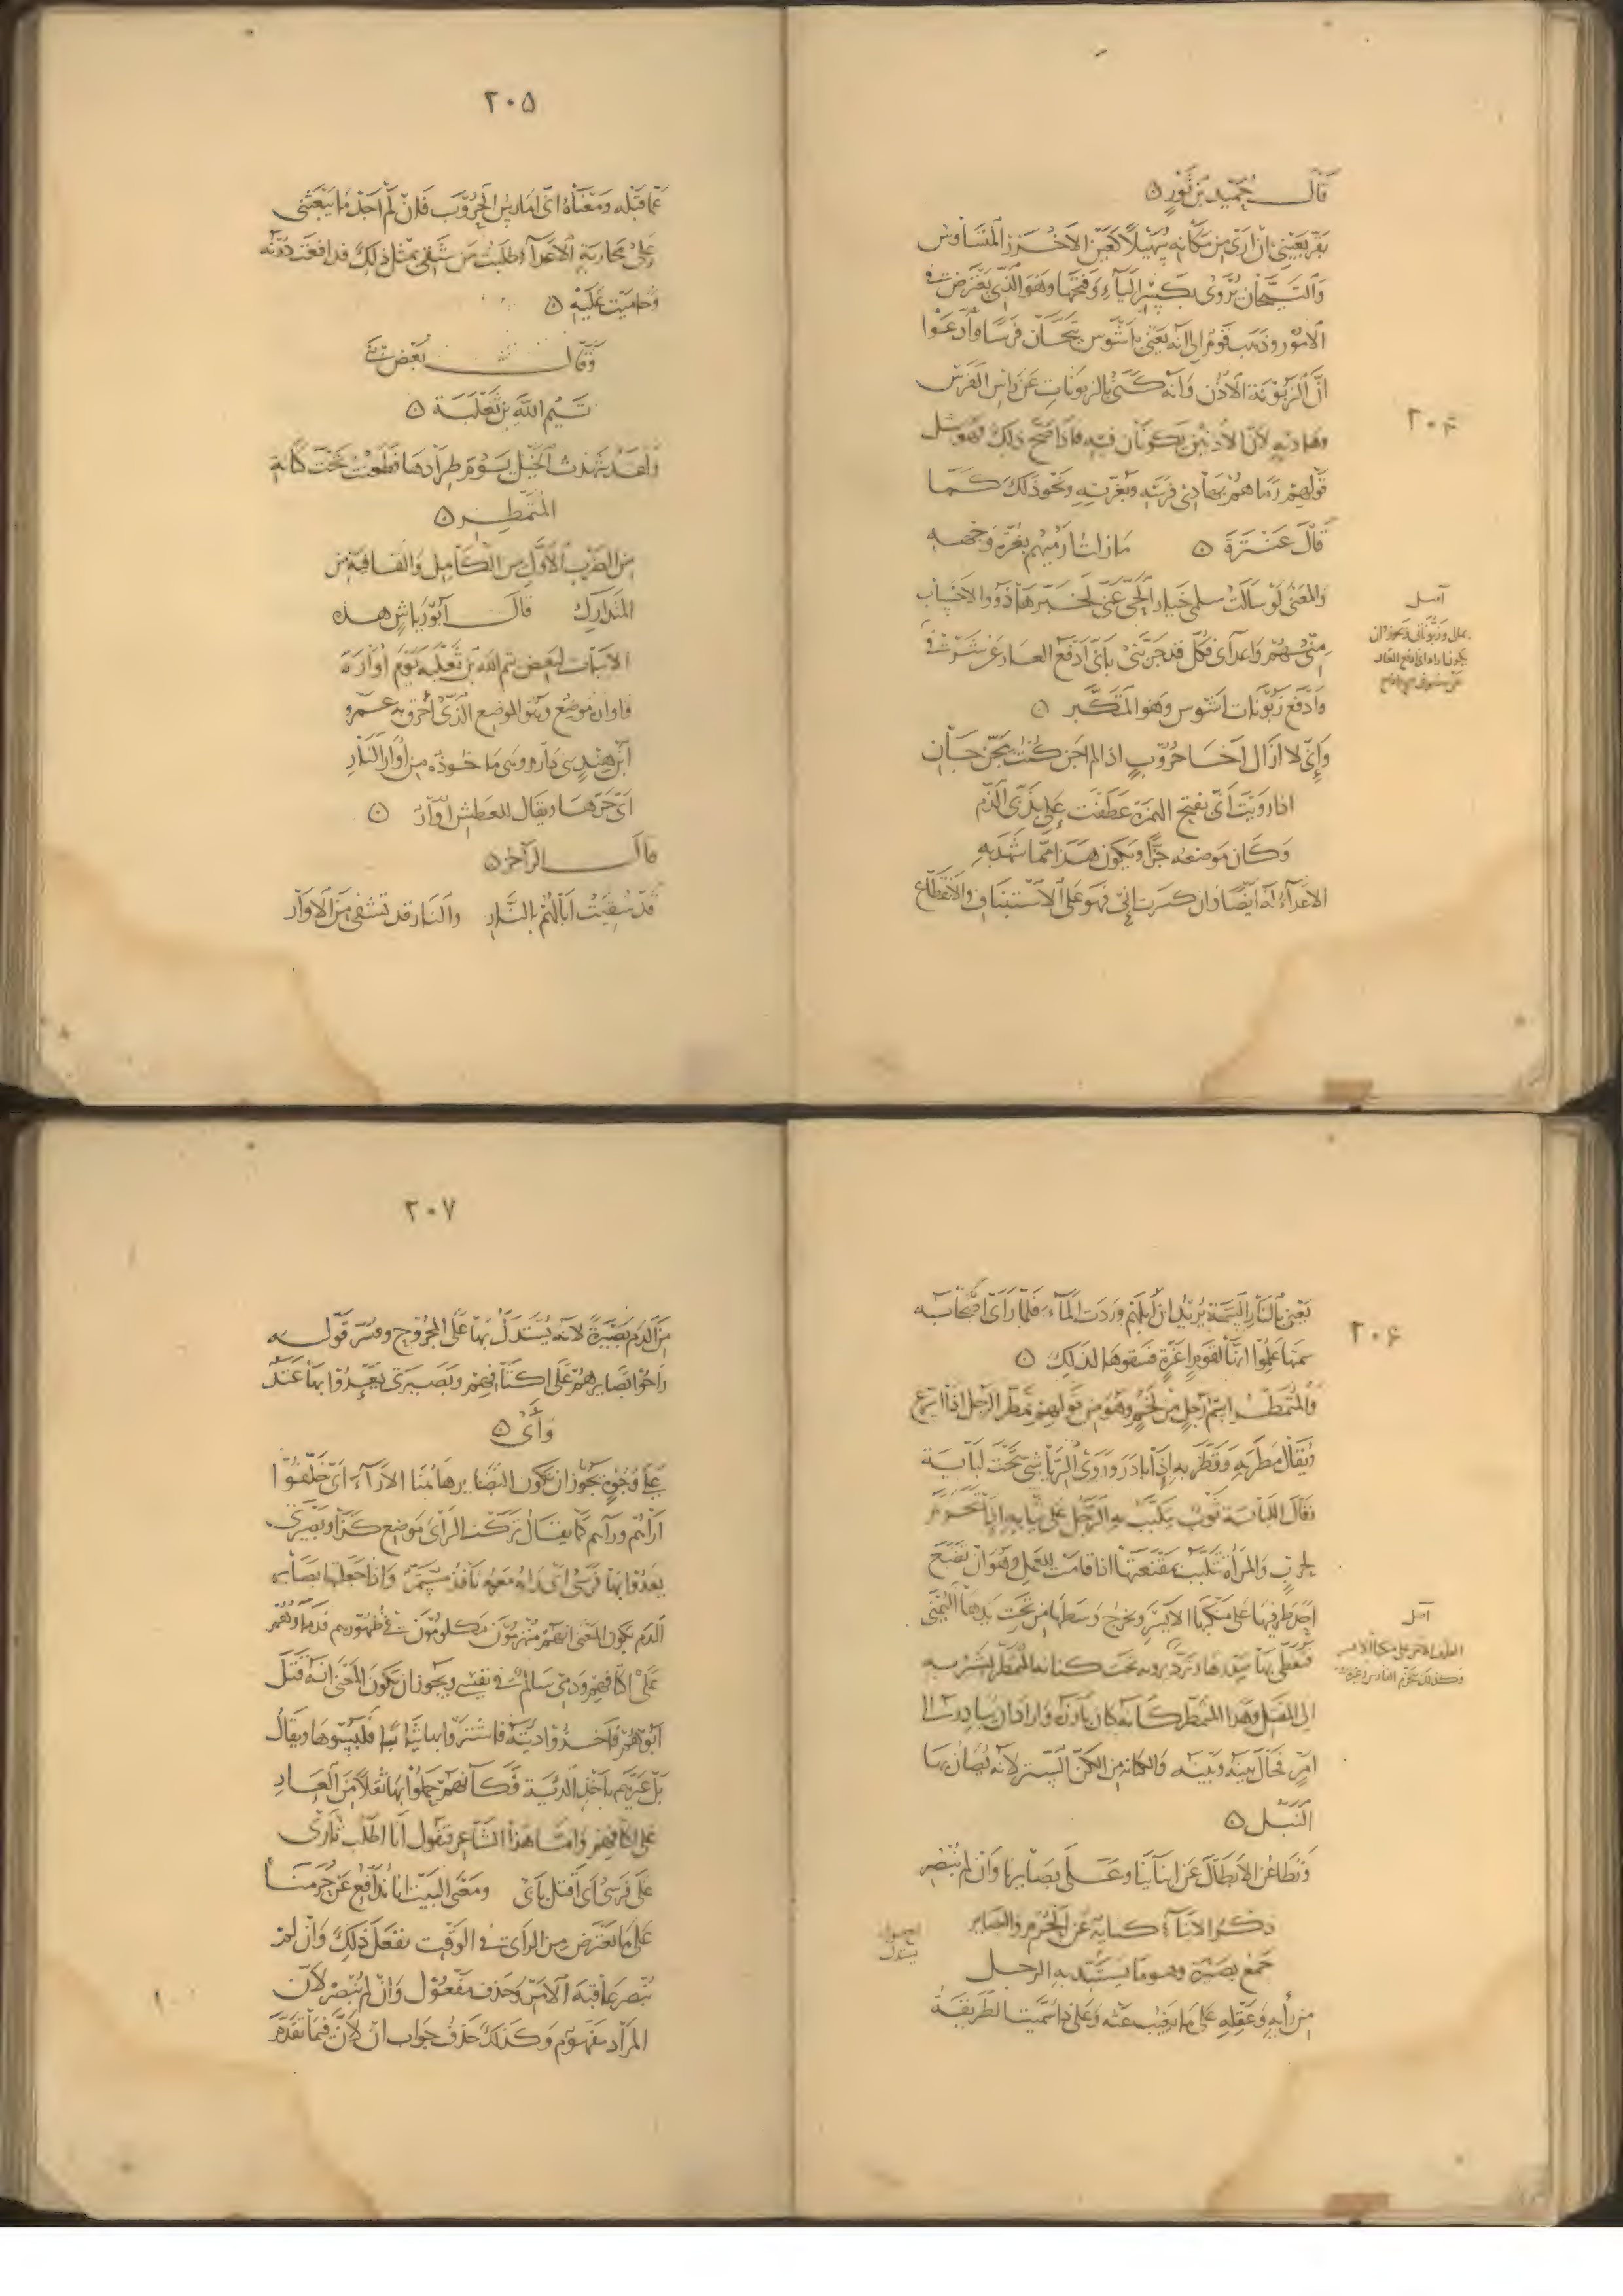 ٢٠٤
قَالَ حُمَيْد بن ثَوْرٍ ن
بعَيْنَي اَنْ اَرَى مِن مَكَانِهِ سُهَيْلًا كَعَيْن الاَخْزَرِ المُتَشَاوس
وَالتَّيَّحَانُ يُرْوَى بكَسْرِ اليَاءِ وَفَتْحِهَا وَهُوَ الَّذِي يعْتَرضُ في
الاُمُور وذهب قَوْمٌ اِلى اَنَّه يَعْنِي باَشْوَس تيَّحَان فَرَسًا وَاَدعَوْا
اَنَّ الزَبُّونَةَ الاُذُن وَانَّه كَنَّى بالزبُونَاتِ عَن رَاس الفَرَس
وهَاديهِ لاَنَّ الاُذنَيْن يَكونَان فيه فَاذا صَحَّ ذلكَ فهُوَ مثل
قَوْلِهِمْ رمَاهم بِهَادِي فَرَسِه وبغُرَّتِهِ وَنَحْو ذلكَ كَمَا
قَالَ عَنْتَرَة ن مَا زلتُ اَرميهم بغُرَّة وَجْههِ
وَالمعْنَى لَوْ سَاَلَتْ سلمى خيَار الحَيِّ عَنِّي لَخَبَّرَهَا ذَوُو الاَحْسَاب
مِنْهُمْ وَاعدَآى فكل قد جَرَّبَني بِاَنِّي اَدْفَع العَار عَن شَرَفي
وَاَدْفَع زَبُّونَات اَشْوس وَهُوَ المتَكَبّر ن
وَاِنِّي لا اَزَال اَخَا حُرُوْبٍ اذا لم اَجن كُنْتُ مِجَنَّ جَان
اذا رَوَيْتَ اَنِّي بفتح الهمزة عَطَفْتَ عَلى بذَبِّى الذَّم
وَكَان مَوضعُه جَرًّا وَيكون هَذَا ممّا شَهِدَ بِهِ
الاعدَآءُ لَهُ ايضًا وَان كسَرتَ اِنّي فهَوَ عَلى الاسْتينَافِ والانْقطَاع
اصل
٢٠٥
عَمَّا قَبْلَه وَمَعْنَاهُ انّى اُمَارِسُ الحُرُوْبَ فَاِنْ لَمْ اَجدْ مَا يَبْعَثُني
عَلى مُحَارَبَةِ الاَعدَآءِ طَلبْتُ مَن شَقِي بمثْل ذلكَ فدَافعْتُ دُوْنَهُ
وَحَامَيْت عَلَيْهِ ن
وَقَالَ بَعْض بَنى
تَيْم اللهِ بن ثَعْلَبَة ن
وَلَقَدْ شَهدتُ الخَيْلَ يَوْمَ طِرَادهَا فطَعَنْتُ تَحْتَ كنَانةِ
المُتَمَطِّرِ ن
مِن الضَربِ الاَوَّل من الكَامِل وَالقَافيَة من
المتدَارك قَالَ اَبُو رِيَاشٍ هذه
الاَبيَات لِبَعض تيم الله بْن ثَعْلَبَة يَوْمَ اُوَارَة
وَاُوَارة مَوضِعٌ وَهُوَ الموضع الَّذي اُحرق به عَمْرو
ابْن هِنْدٍ بَني دَارم وهى مَاخُوذةٌ من اُوَارِ النَّارِ
اَي حَرِّهَا ويقَال للعَطَش اُوَارٌ ن
قَالَ الراجز ن
قَدْ سُقِيَتْ اٰبَالُهُمْ بالنَّار وَالنَار قَدْ تَشْفِي مِنَ الاُوَار
٢٠٦
يَعْنِي بالنَّارِ السِّمَة يُرِيد اَنَّ اِبلَهُم وَرَدَت المَآء فَلَمَّا رَاَى اَصْحَابُه
سِمَتهَا عَلِمُوا انّهَا لقَومٍ اَعِزَّةٍ فسَقَوهَا لذَلكَ ن
وَالمُتَمَطِّر اسْم رَجُلٍ مِن لَخْمٍ وَهُوَ مِن قَولهم تمَطَّر الرَجُل اذا اسْرَع
وَيُقَال مَطَرَ بهِ وَقَطَر بهِ اِذَا بَادَرَ ورَوَى الرِّيَاشي تَحْتَ لَبَابَة
فقَالَ اللَّبَابَة ثَوْبٌ يتَلَبَّب به الرَّجُل عَلى ثيَابه اذا تَحَزّمَ
لحَربٍ وَالمَرْاَة تتَلبَّب بمقْنَعَتهَا اذا قامَت للعَمَل وهوَ اَنْ تضَعَ
اَحد طرفَيهَا عَلى مَنْكبهَا الاَيسَر وتخرج وَسَطهَا مِن تحْتِ يَدهَا اليُمْنَى
اِلى المقتل وَهذا المتَمطّر كَاَنَّه كانَ بَارَزَهُ وَاَرَادَ ان يبَادِرَ الى
اَمرٍ فحَالَ بَيْنَهُ وَبَيْنَه وَالكنَانه مِن الكَنّ السَتر لانَّه يُصَان بهَا
النَّبْل ن
وَنُطَاعِنُ الاَبْطَالَ عَن اَبنَآئِنَا وَعَلَى بَصَائِرنَا وَاِن لَم نُبْصِر
ذكر الاَبنَآء كنَايَة عَن الحُرَم والبصَائر
جَمْع بَصِيْرَة وهوَ مَا يَسْتَبدّ به الرجل
مِن رَأيهِ وَعَقلِهِ عَلى مَا يَغيْب عَنْه وَعَلى ذا سُمّيَت الطَّرِيقَة
اصل
٢٠٧
مِنَ الدَم بَصِيْرَةً لاَنّه يُسْتَدَلُّ بهَا عَلَى المجْرُوح وفُسّرَ قَوْله
رَاحُوا بَصَائِرُهُمْ عَلَى اكتَافِهم وَبَصيرَتى يَعْدُوْا بهَا عَتَدٌ
وَأَى ن
عَلى وُجُوهٍ يجُوز ان تكون البَصَائر هَاهُنَا الاَرَآءَ اَي خَلَّفُوْا
اَرَاءهم ورَاءهم كمَا يقَالُ تَرَكت الرَاىَ بمَوضِع كَذَا وَبصِيْرَتى
يعدُوا بهَا فَرَسي اى رَاى مَعَهم نَافذٌ مستَمرّ وَاذا جَعلتها بَصَائر
الدم يكون المعْنَى انهم منهَزمُوْن مكلومُوْن في ظُهُورهم فدماؤهم
عَلى اكتَافهم وَدَمِي سَالمٌ في نفسي ويجوز ان يكُونَ المعْنَى انّه قتل
اَبُوْهُمْ فَاخذُوْا ديَتَه فاشتَرَوا بها ثيَابًا فَلَبِسُوْهَا ويقَالُ
بَلْ عَيَّرهم باَخذِ الديَة فكَاَنّهم حَمَلُوا بهَا ثقلًا مِن العَارِ
عَلى اكتافهم وَامّا هذا الشَاعر فيقول انا اطلُب ثارى
عَلى فَرَسي اَي اَقتل باَبى وَمَعنَى البَيْت انا ندَافع عَن حُرَمنَا
عَلى مَا يَعْتَرض مِن الرَاى في الوَقْت نفعَلُ ذلكَ وَانْ لم
نُبصر عَاقبَة الاَمْر وَحذف مَفْعُوْل وَانْ لم نُبصر لاَنّ
المرَاد مَفهُوْم وَكذلكَ حَذَفَ جَوَاب ان لاَنَّ فيْمَا تقدَّمَ